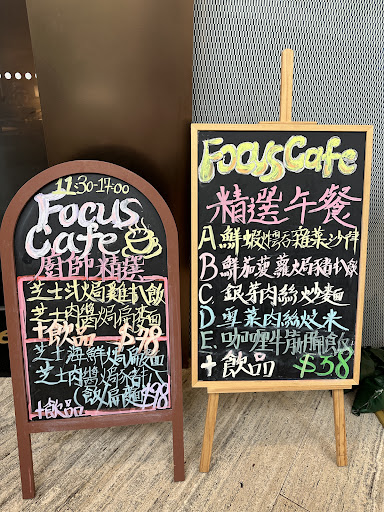 11:30-17:00
Focus
Cafe
廚師精選
芝士汁焗雞扒飯
芝士肉醬焗
+飲品
芝士海鮮焗
芝士肉醬焗
+飲品 $98
Focus Cafe
精選午餐
A 鮮蝦 雜菜沙律
B 鮮茄菠蘿焗豬扒飯
C. 銀芽肉絲炒麵
D 雪菜肉絲炆米
E. 咖喱牛腩飯
+飲品 $58